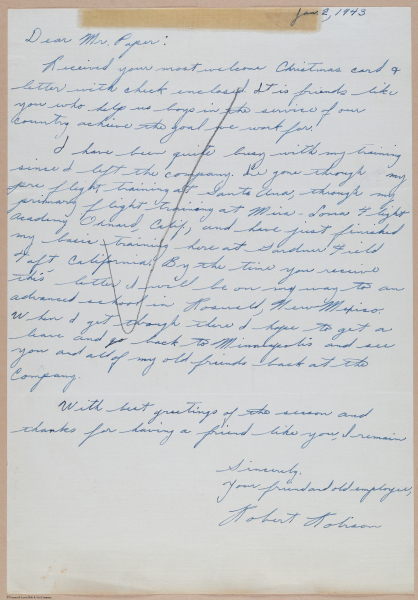 Jan. 2, 1943
Dear Mr. Paper:
Received your most welcome Christmas card &
letter with check enclosed. It is friends like
you who help us boys in the service of our
country achieve the goal we work for!
I have been quite busy with my training
since I left the company. I've gone through my
pre flight training at Santa Ana, through my
primary flight training at Mira Loma Flight
academy, Oxnard, Calif, and have just finished
my basic training here at Gardner Field
Taft California. By the time you receive
this letter, I will be on my way to an
advanced school in Roswell, New Mexico.
When I get though there I hope to get a
leave and go back to Minneapolis and see
you and all of my old friends back at the
Company.
With best greetings of the season and
thanks for having a friend like you, I remain
Sincerely,
Your friend and old employee,
Robert